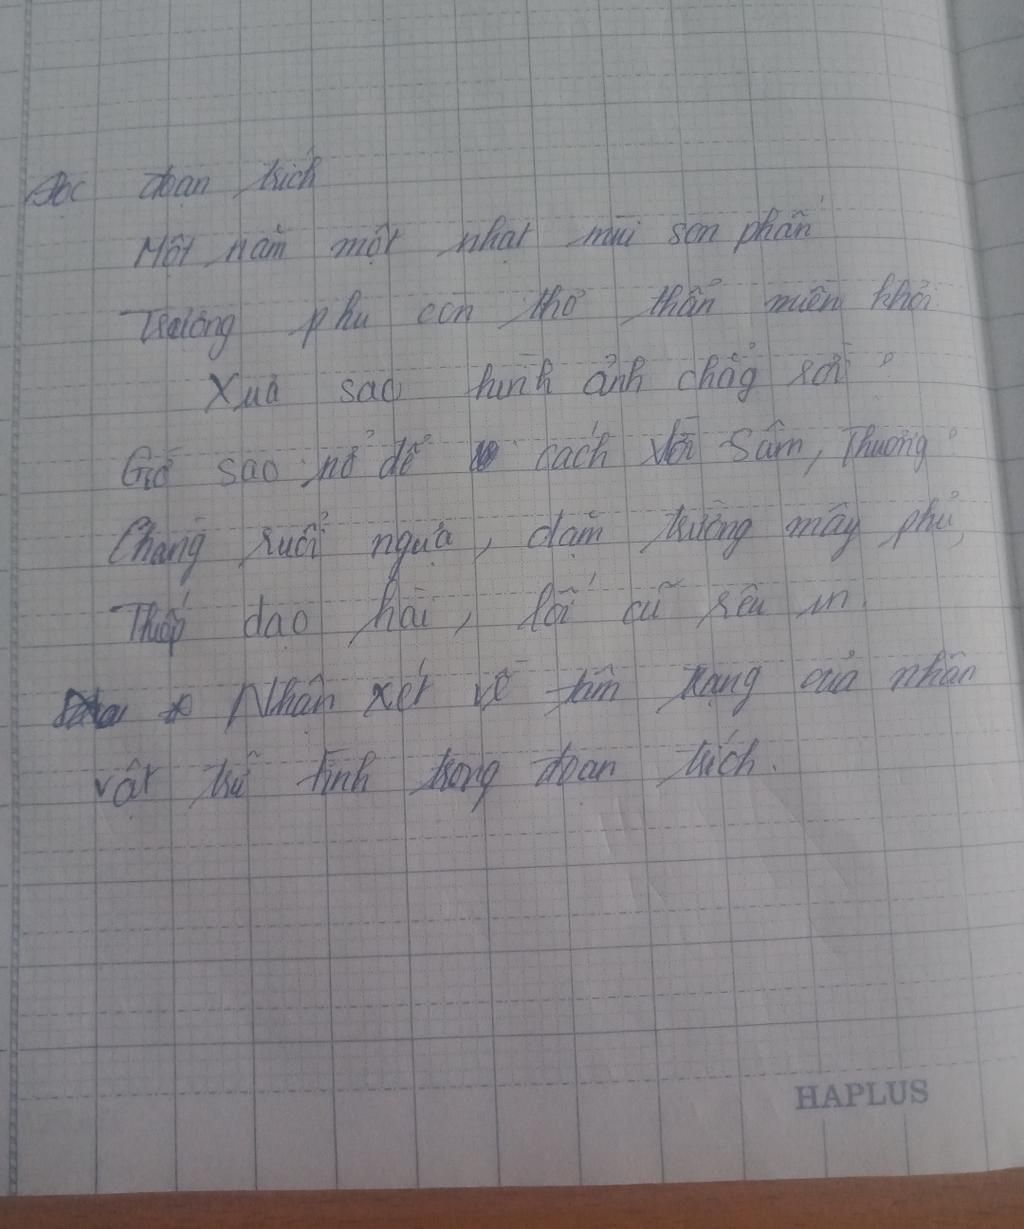 Đọc đoạn trích
Một năm một nhạt mùi son phấn
Trượng phu còn thơ thẩn miền khơi
Xưa sao hình ảnh chẳng rời?
Giờ sao nỡ để cách vời Sâm, Thương?
Chàng ruổi ngựa, dặm trường mây phủ,
Thiếp dạo hài, lối cũ rêu in.
* Nhận xét về tâm trạng của nhân
vật trữ tình trong đoạn trích.
HAPLUS